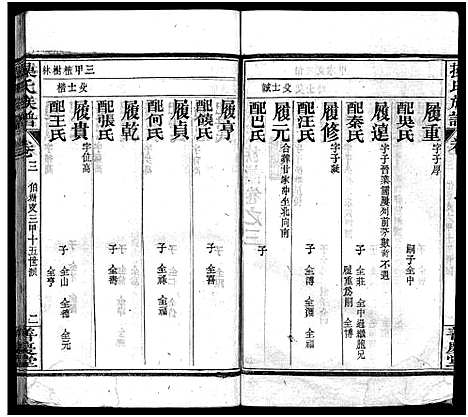 履重 字子厚
配吳氏
嗣子 全中
履遠 字子晉 業儒 屢列前茅 數奇不遇
配秦氏
子 全莊 全中 過繼胞兄履重爲嗣 全博
父士誠
履修 字子凝
配汪氏
子 全傅 全福
履元 合葬甘家冲坐北向南
配巴氏
三甲植樹林
父士楷
履亨
配饒氏
子 全喜
履貞
配何氏
子 全祿 全福
履乾
配張氏
子 全壽
履貴 字位高
配王氏
子 全山 全德 全元 全亨
氏族譜
卷三
三甲十五世派
二
善慶堂